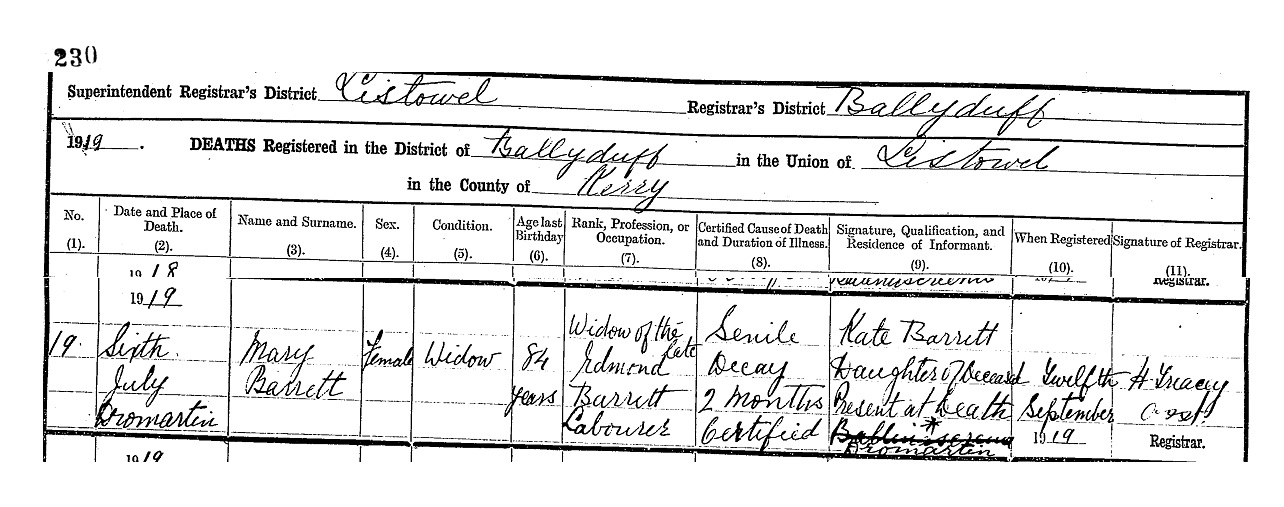 230
Superintendent Registrar's District Listowel Registrar's District Ballyduff
1919. DEATHS Registered in the District of Ballyduff in the Union of Listowel
in the County of Kerry
No. (1).
Date and Place of Death. (2).
Name and Surname. (3).
Sex. (4).
Condition. (5).
Age last Birthday (6).
Rank, Profession, or Occupation. (7).
Certified Cause of Death and Duration of Illness. (8).
Signature, Qualification, and Residence of Informant. (9).
When Registered (10).
Signature of Registrar. (11).
1918
Registrar.
1919
19
Sixth
July
Dromartin
Mary
Barrett
Female
Widow
84
years
Widow of the
late
Edmond
Barrett
Labourer
Senile
Decay
2 Months
Certified
Kate Barrett
Daughter of Deceased
Present at Death
*
Dromartin
Twelfth
September
1919
H Treacy
Registrar.
1919